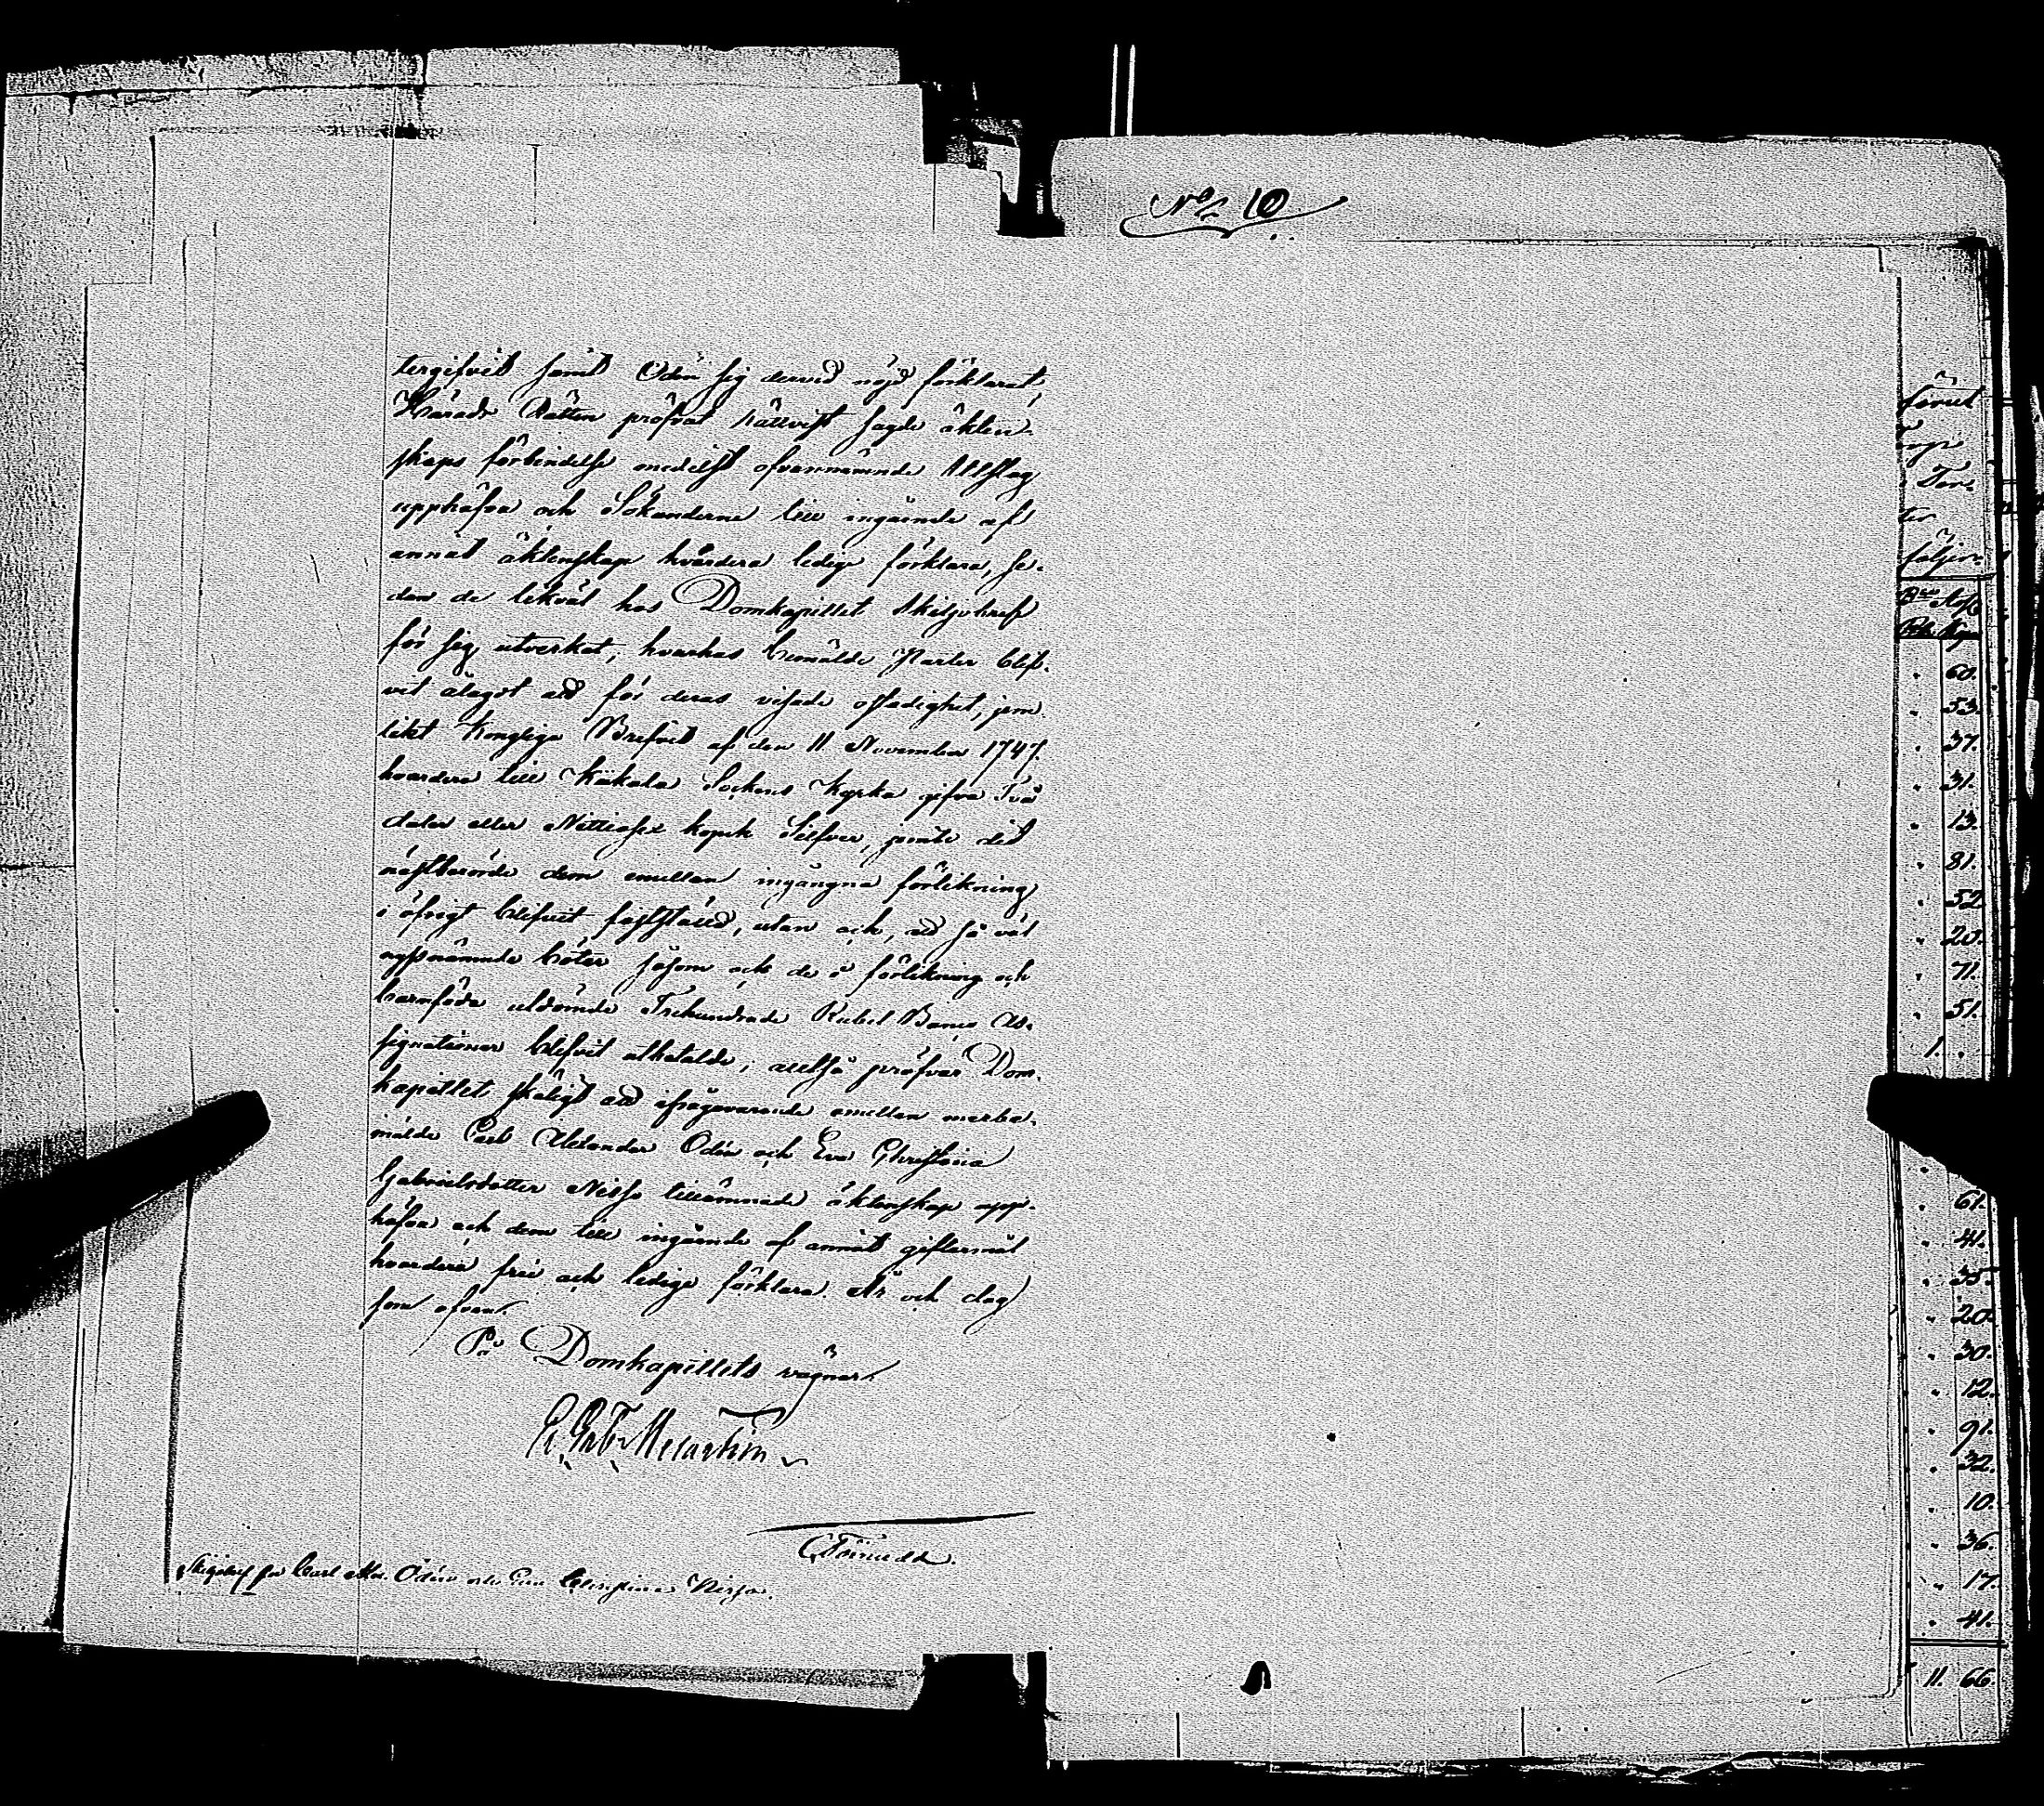 No 10
tergifvit samt Odén sig dervid nöjd förklarat,
Härads Rätten pröfvat rättvist sagde äkten-
skaps förbindelse medelst ofvannämnde Utslag
upphäfva och Sökanderne till ingående af
annat äktenskap hvardera ledige förklara, se-
dan de likväl hos Domkapitlet Skiljobref
för sig utverkat, hvarhos bemälde Parter blif-
vit ålagdt att för deras visade ostadighet, jem-
likt Kongliga Brefvet af den 11 November 1747.
hvardera till Kiikala Sockens Kyrka gifva Två
daler eller Nittiosex kopek Silfver, jemte det
näst berörde dem emellan ingångna förlikning
i öfrigt blifvit fastställd, utan ock, att så väl
nyssnämnde böter såsom ock de i förlikning och
barnföda utdömde Trehundrade Rubel Banco As-
signationer blifvit utbetalde; alltså pröfvar Dom-
kapitlet skäligt att ifrågavarande emellan merbe-
mälde Carl Alexander Odén och Eva Christina
Gabrielsdotter Nisse tillämnade äktenskap upp-
häfva och dem till ingående af annat giftermål
hvardera frie och ledige förklara. År och dag
som ofvan.
På Domkapitlets vägnar
Skiljobref för Carl Alex. Odén och Eva Christina
förut
Ter-
ter
följer
60.
53.
37.
31.
13.
81.
52.
20.
71.
51.
1.
61.
41.
35.
20.
30.
12.
91.
32.
10.
36.
17.
41.
11. 66.